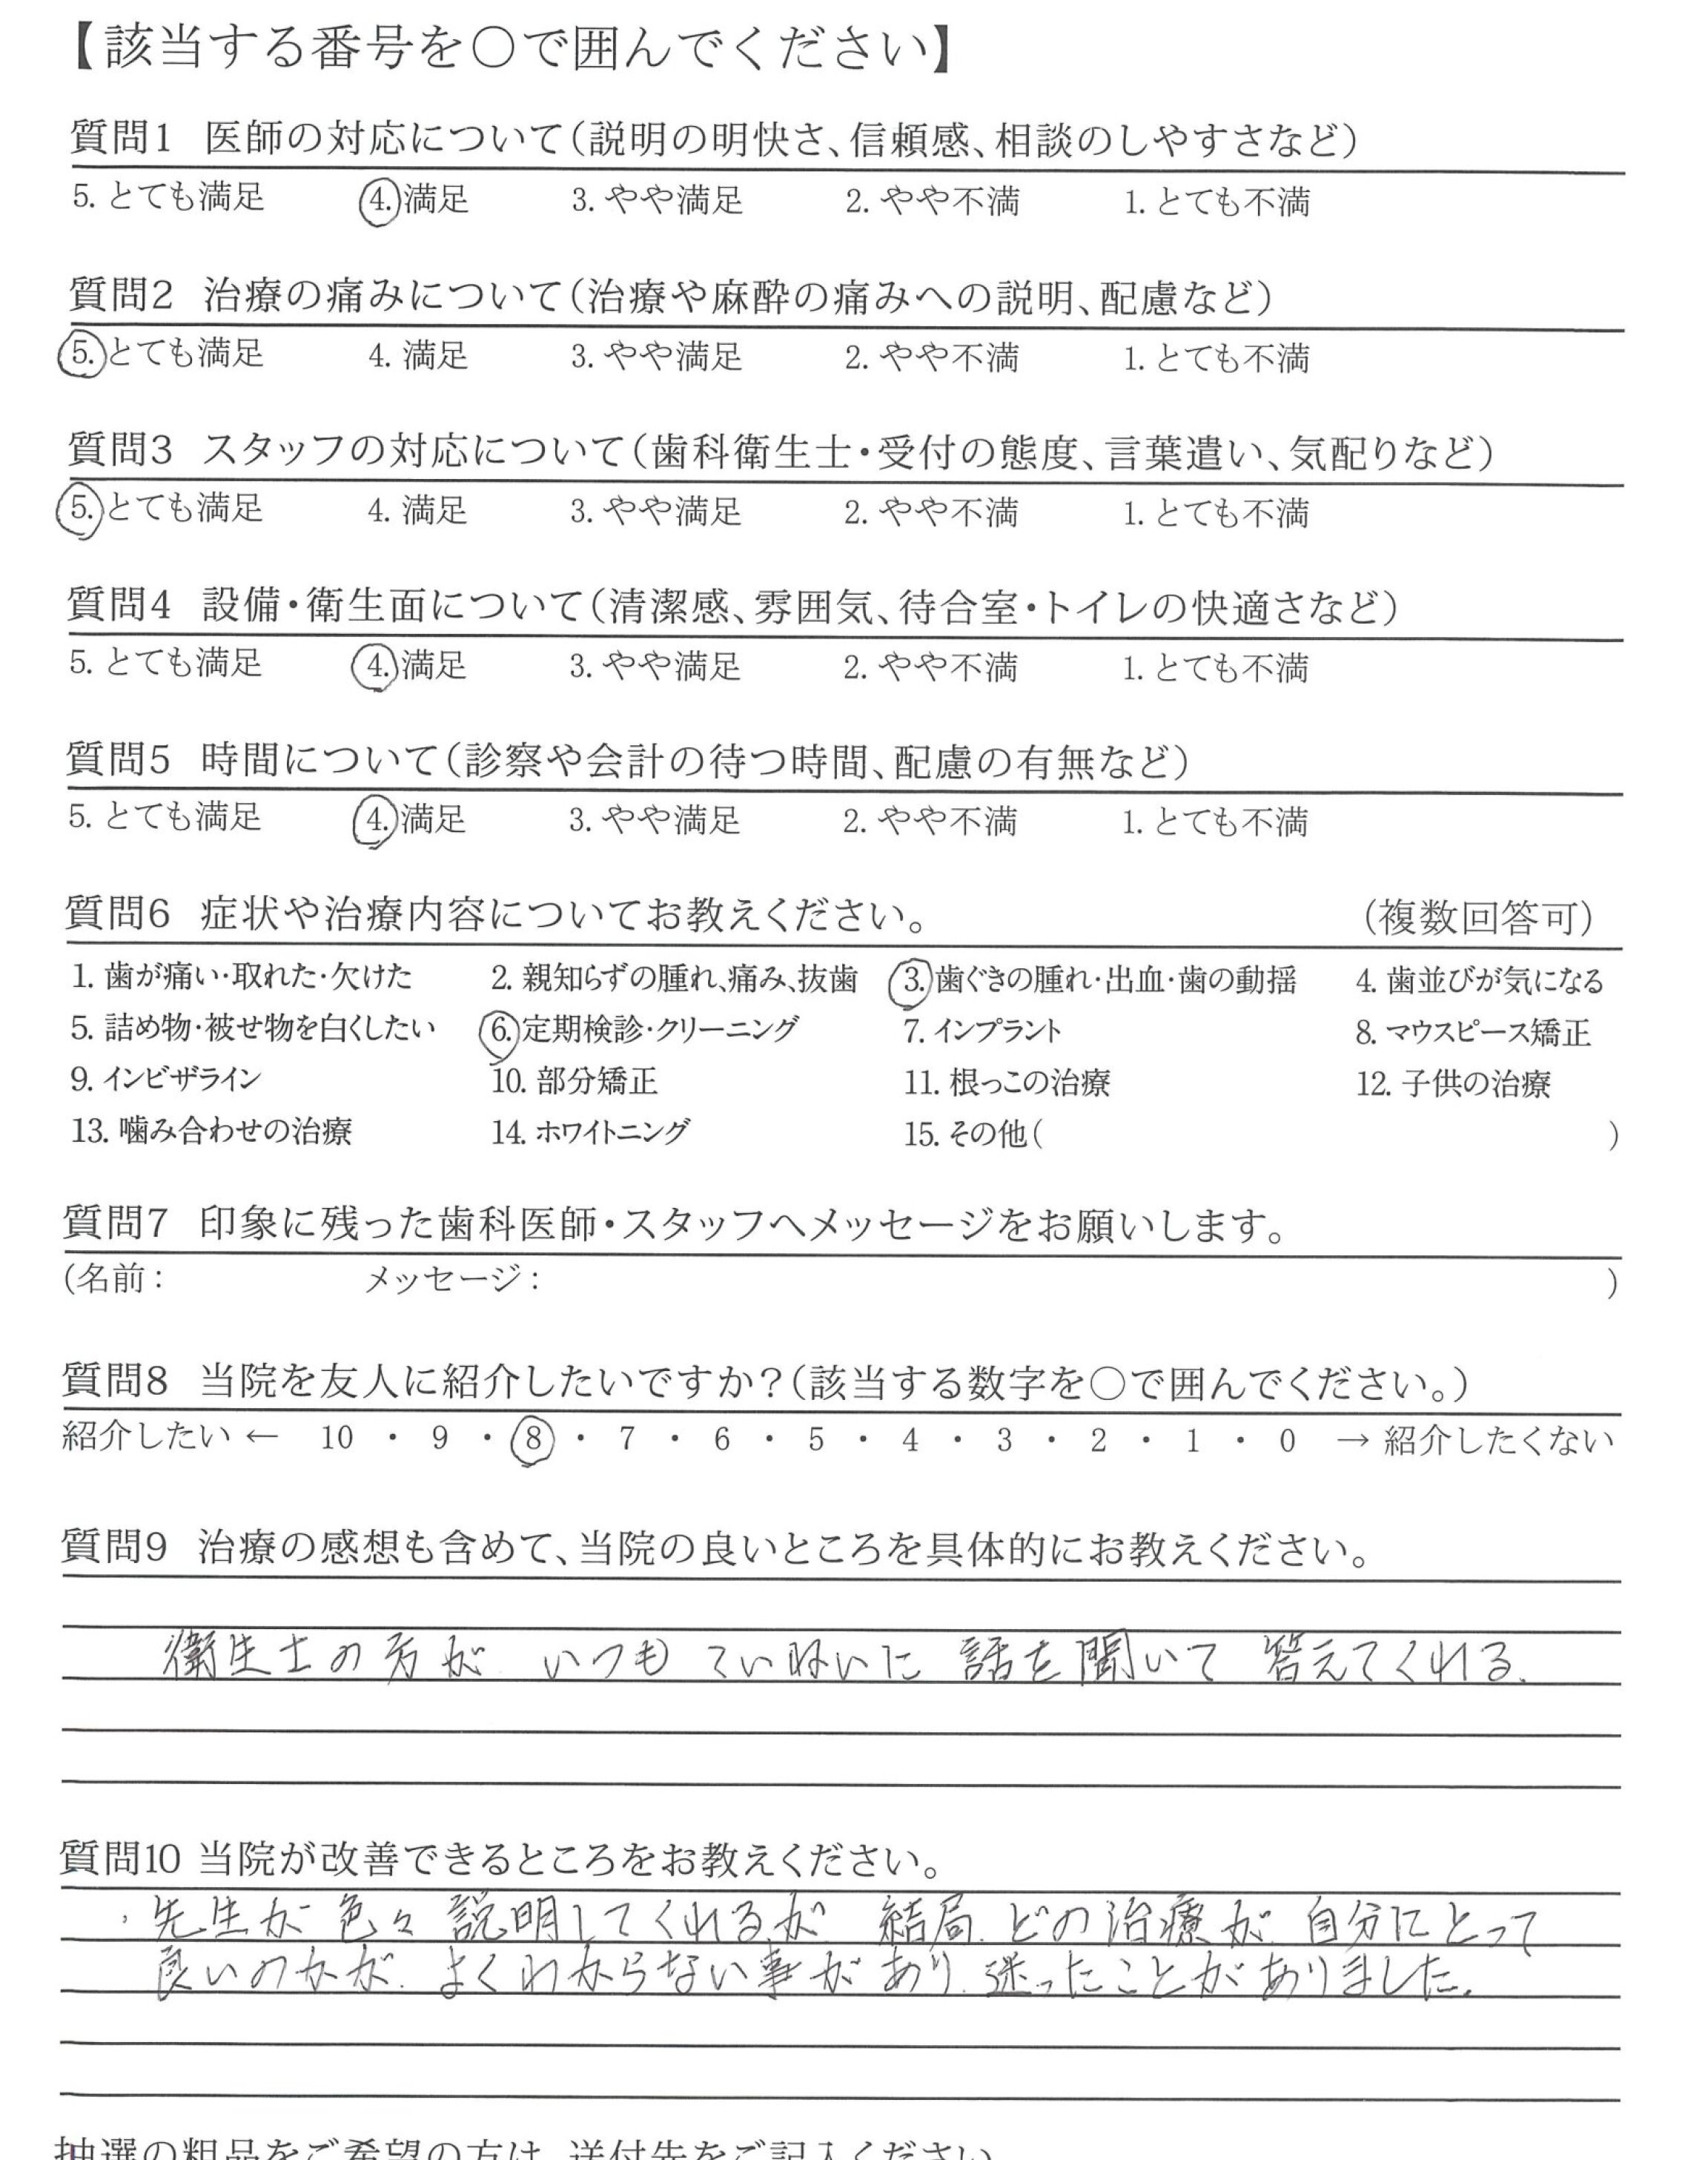 【該当する番号を○で囲んでください】
質問1 医師の対応について(説明の明快さ、信頼感、相談のしやすさなど)
5. とても満足 4. 満足 3. やや満足 2. やや不満 1. とても不満
質問2 治療の痛みについて(治療や麻酔の痛みへの説明、配慮など)
5. とても満足 4. 満足 3. やや満足 2. やや不満 1. とても不満
質問3 スタッフの対応について(歯科衛生士・受付の態度、言葉遣い、気配りなど)
5. とても満足 4. 満足 3. やや満足 2. やや不満 1. とても不満
質問4 設備・衛生面について(清潔感、雰囲気、待合室・トイレの快適さなど)
5. とても満足 4. 満足 3. やや満足 2. やや不満 1. とても不満
質問5 時間について(診察や会計の待つ時間、配慮の有無など)
5. とても満足 4. 満足 3. やや満足 2. やや不満 1. とても不満
質問6 症状や治療内容についてお教えください。 (複数回答可)
1. 歯が痛い・取れた・欠けた 2. 親知らずの腫れ、痛み、抜歯 3. 歯ぐきの腫れ・出血・歯の動揺 4. 歯並びが気になる
5. 詰め物・被せ物を白くしたい 6. 定期検診・クリーニング 7. インプラント 8. マウスピース矯正
9. インビザライン 10. 部分矯正 11. 根っこの治療 12. 子供の治療
13. 噛み合わせの治療 14. ホワイトニング 15. その他( )
質問7 印象に残った歯科医師・スタッフへメッセージをお願いします。
(名前: メッセージ: )
質問8 当院を友人に紹介したいですか?(該当する数字を○で囲んでください。)
紹介したい ← 10 ・ 9 ・ 8 ・ 7 ・ 6 ・ 5 ・ 4 ・ 3 ・ 2 ・ 1 ・ 0 → 紹介したくない
質問9 治療の感想も含めて、当院の良いところを具体的にお教えください。
衛生士の方が いつも ていねいに 話を聞いて 答えてくれる.
質問10 当院が改善できるところをお教えください。
・先生が 色々 説明してくれるが 結局、どの治療が 自分にとって
良いのかが、よくわからない事があり、迷ったことがありました。
抽選の粗品をご希望の方は、送付先をご記入ください